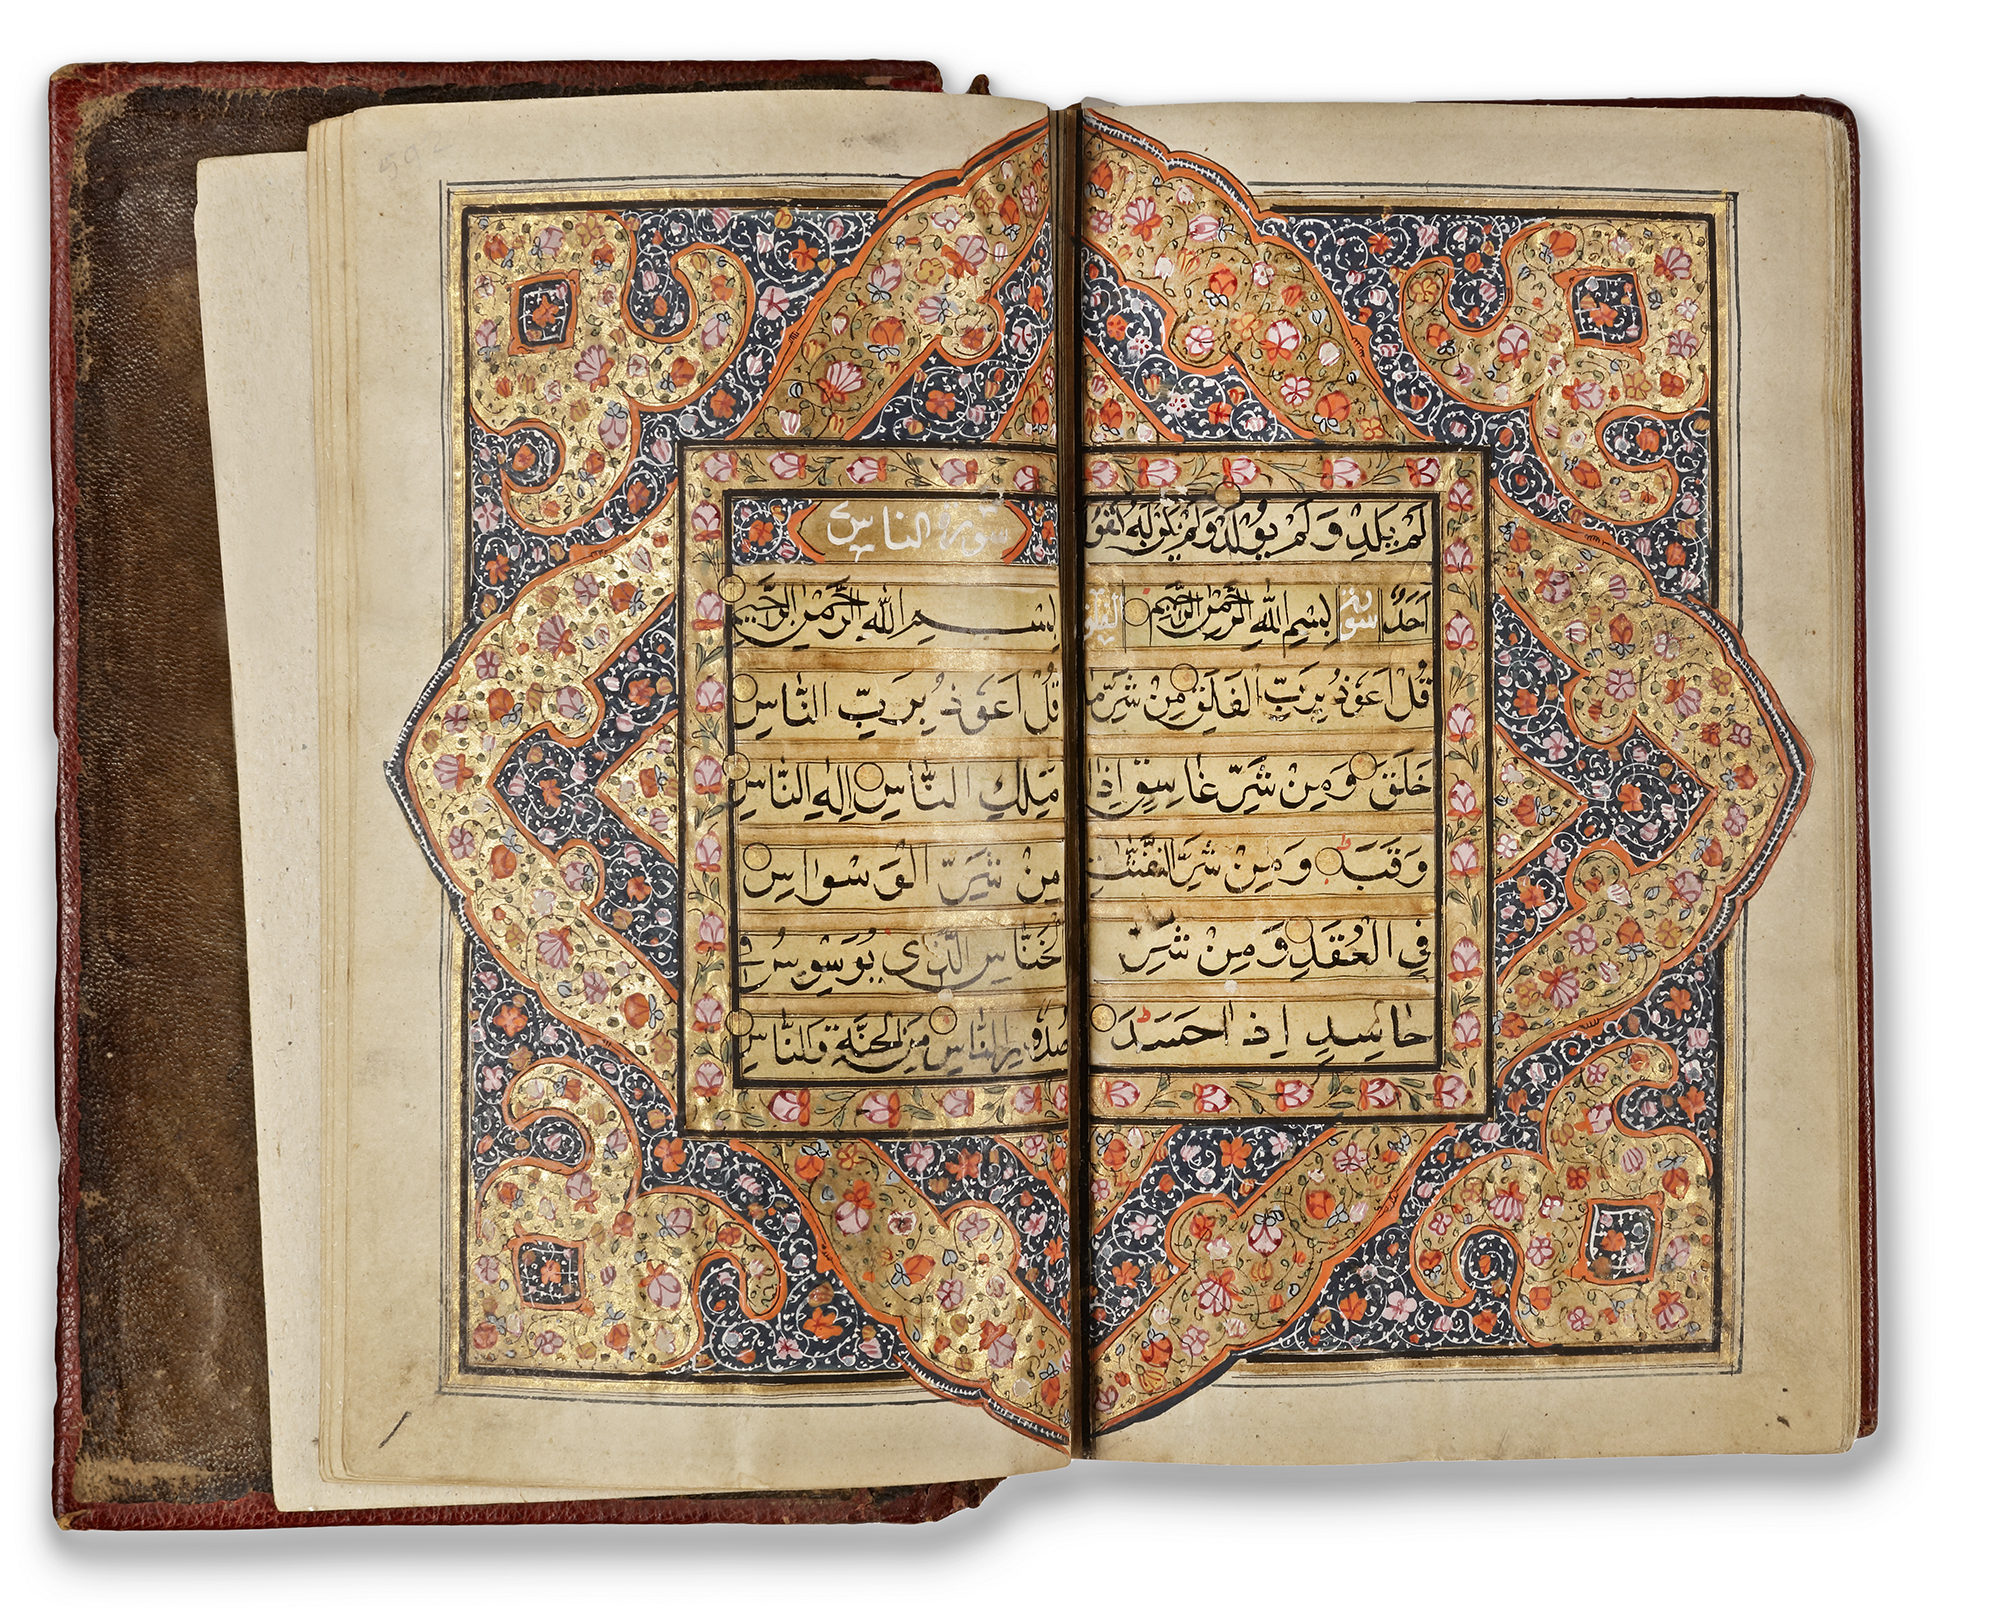 لَمْ يَلِدْ وَلَمْ يُولَدْ وَلَمْ يَكُنْ لَهُ كُفُوًا
اَحَدٌ سورة بِسْمِ اللهِ الرَّحْمٰنِ الرَّحِيْمِ الفلق
قُلْ اَعُوْذُ بِرَبِّ الْفَلَقِ مِنْ شَرِّ مَا
خَلَقَ وَمِنْ شَرِّ غَاسِقٍ اِذَا
وَقَبَ وَمِنْ شَرِّ النَّفّٰثٰتِ
فِي الْعُقَدِ وَمِنْ شَرِّ
حَاسِدٍ اِذَا حَسَدَ
سورة الناس
بِسْمِ اللهِ الرَّحْمٰنِ الرَّحِيْمِ
قُلْ اَعُوْذُ بِرَبِّ النَّاسِ
مَلِكِ النَّاسِ اِلٰهِ النَّاسِ
مِنْ شَرِّ الْوَسْوَاسِ
الْخَنَّاسِ الَّذِي يُوَسْوِسُ فِي
صُدُوْرِ النَّاسِ مِنَ الْجِنَّةِ وَالنَّاسِ
592